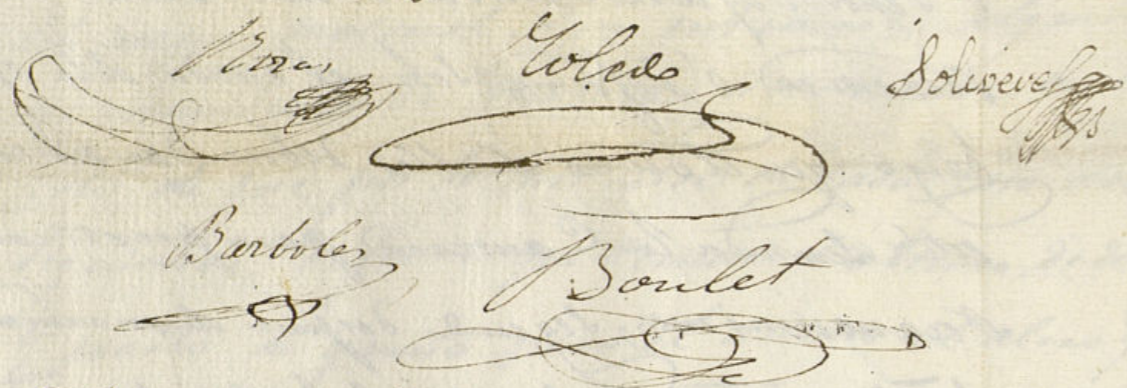 Toledo Soliveres
Barboles Boulet